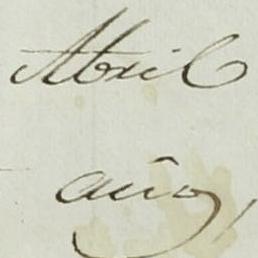 Abril
año,